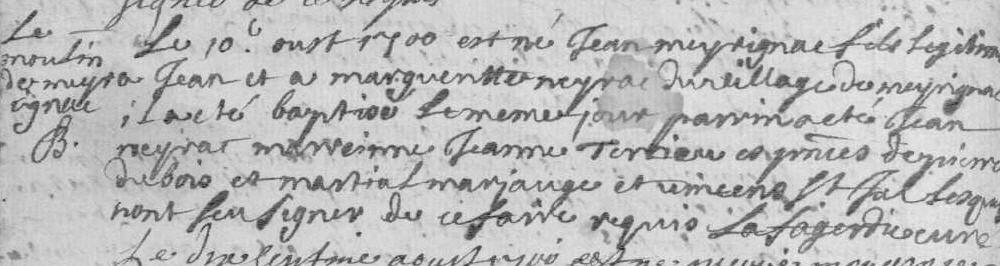 Le
moulin
de meyr
ignac
B.
Le 10e oust 1700 est né Jean meyrignac fils legitim
a Jean et a margueritte neyrac du village de meyrignac
il a eté baptisé le meme jour parrin a eté Jean
neyrac marreinne Jeanne es pnces de pierre
dubois et martial marjauge et vincens st Jal lesqu
nont seu signer de ce faire requis Lafagerdie curé
Le dixseptme aoust 1700 est ne